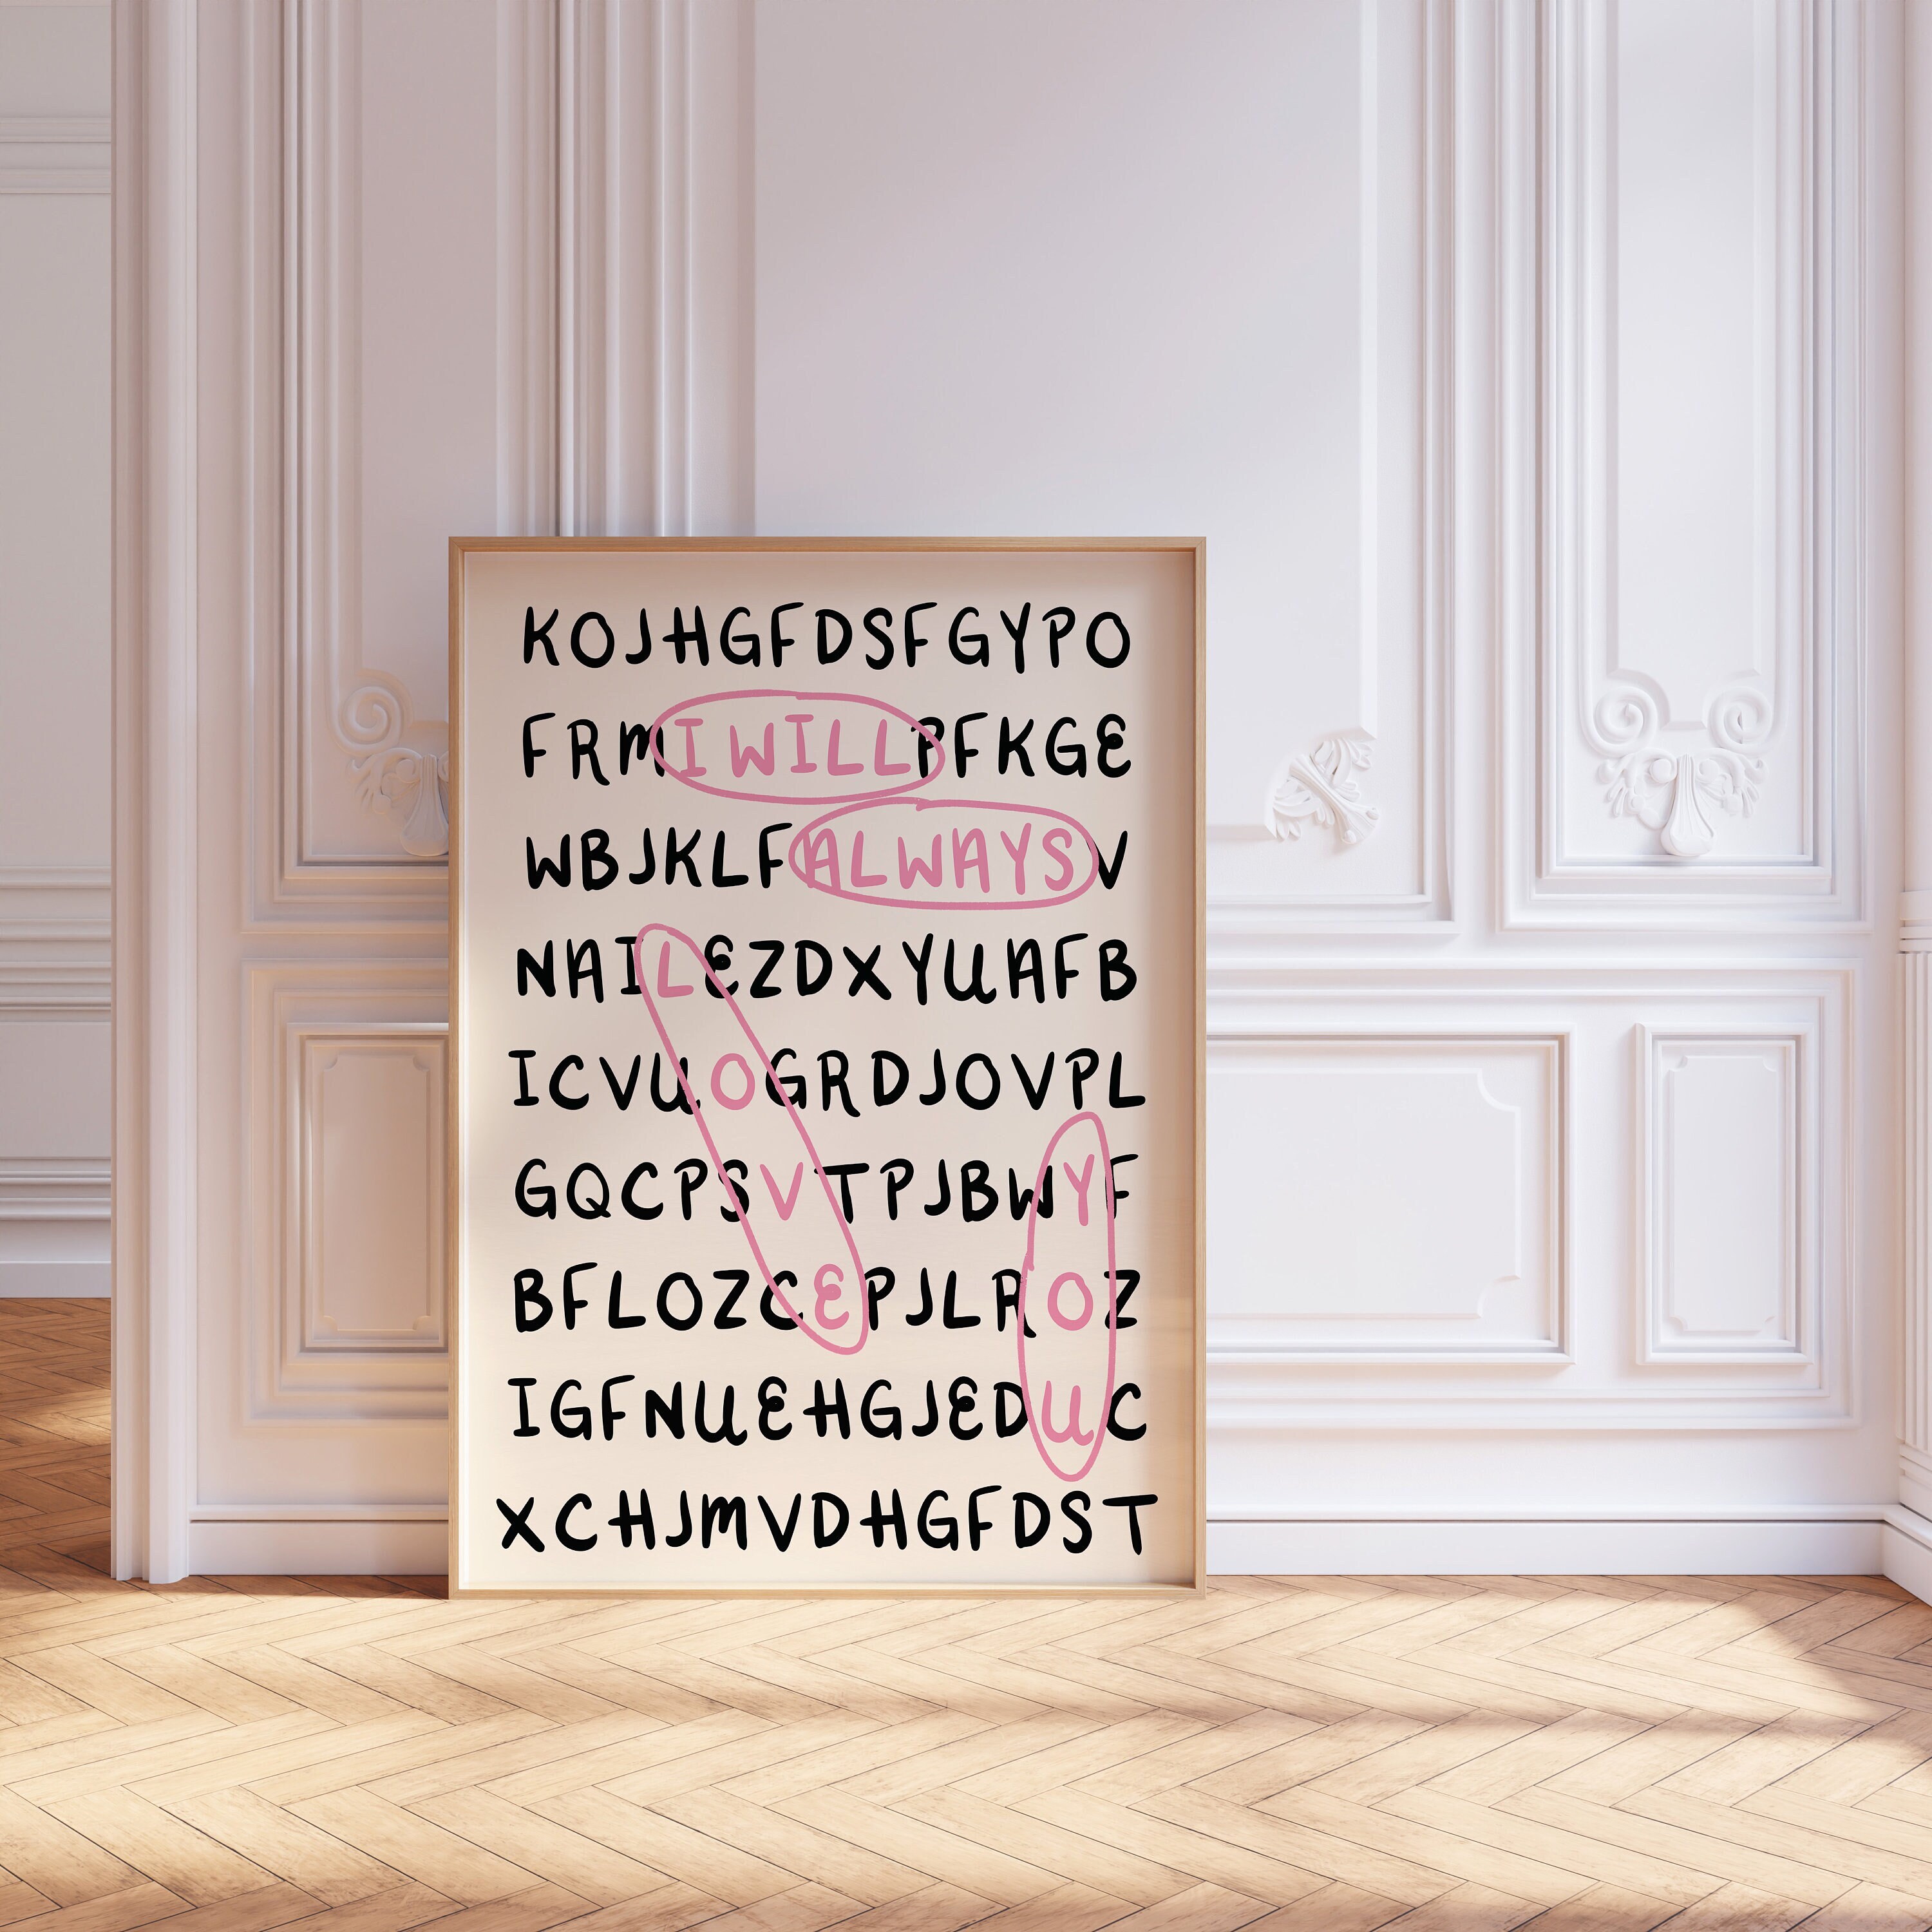 KOJHGFDSFGYPO
FRMI WILLPFKGE
WBJKLFALWAYSV
NAILEZDXYUAFB
ICVUOGRDJOVPL
GQCPSVTPJBWYF
BFLOZCEPJLROZ
IGFNUEHGJEDUC
XCHJMVDHGFDST